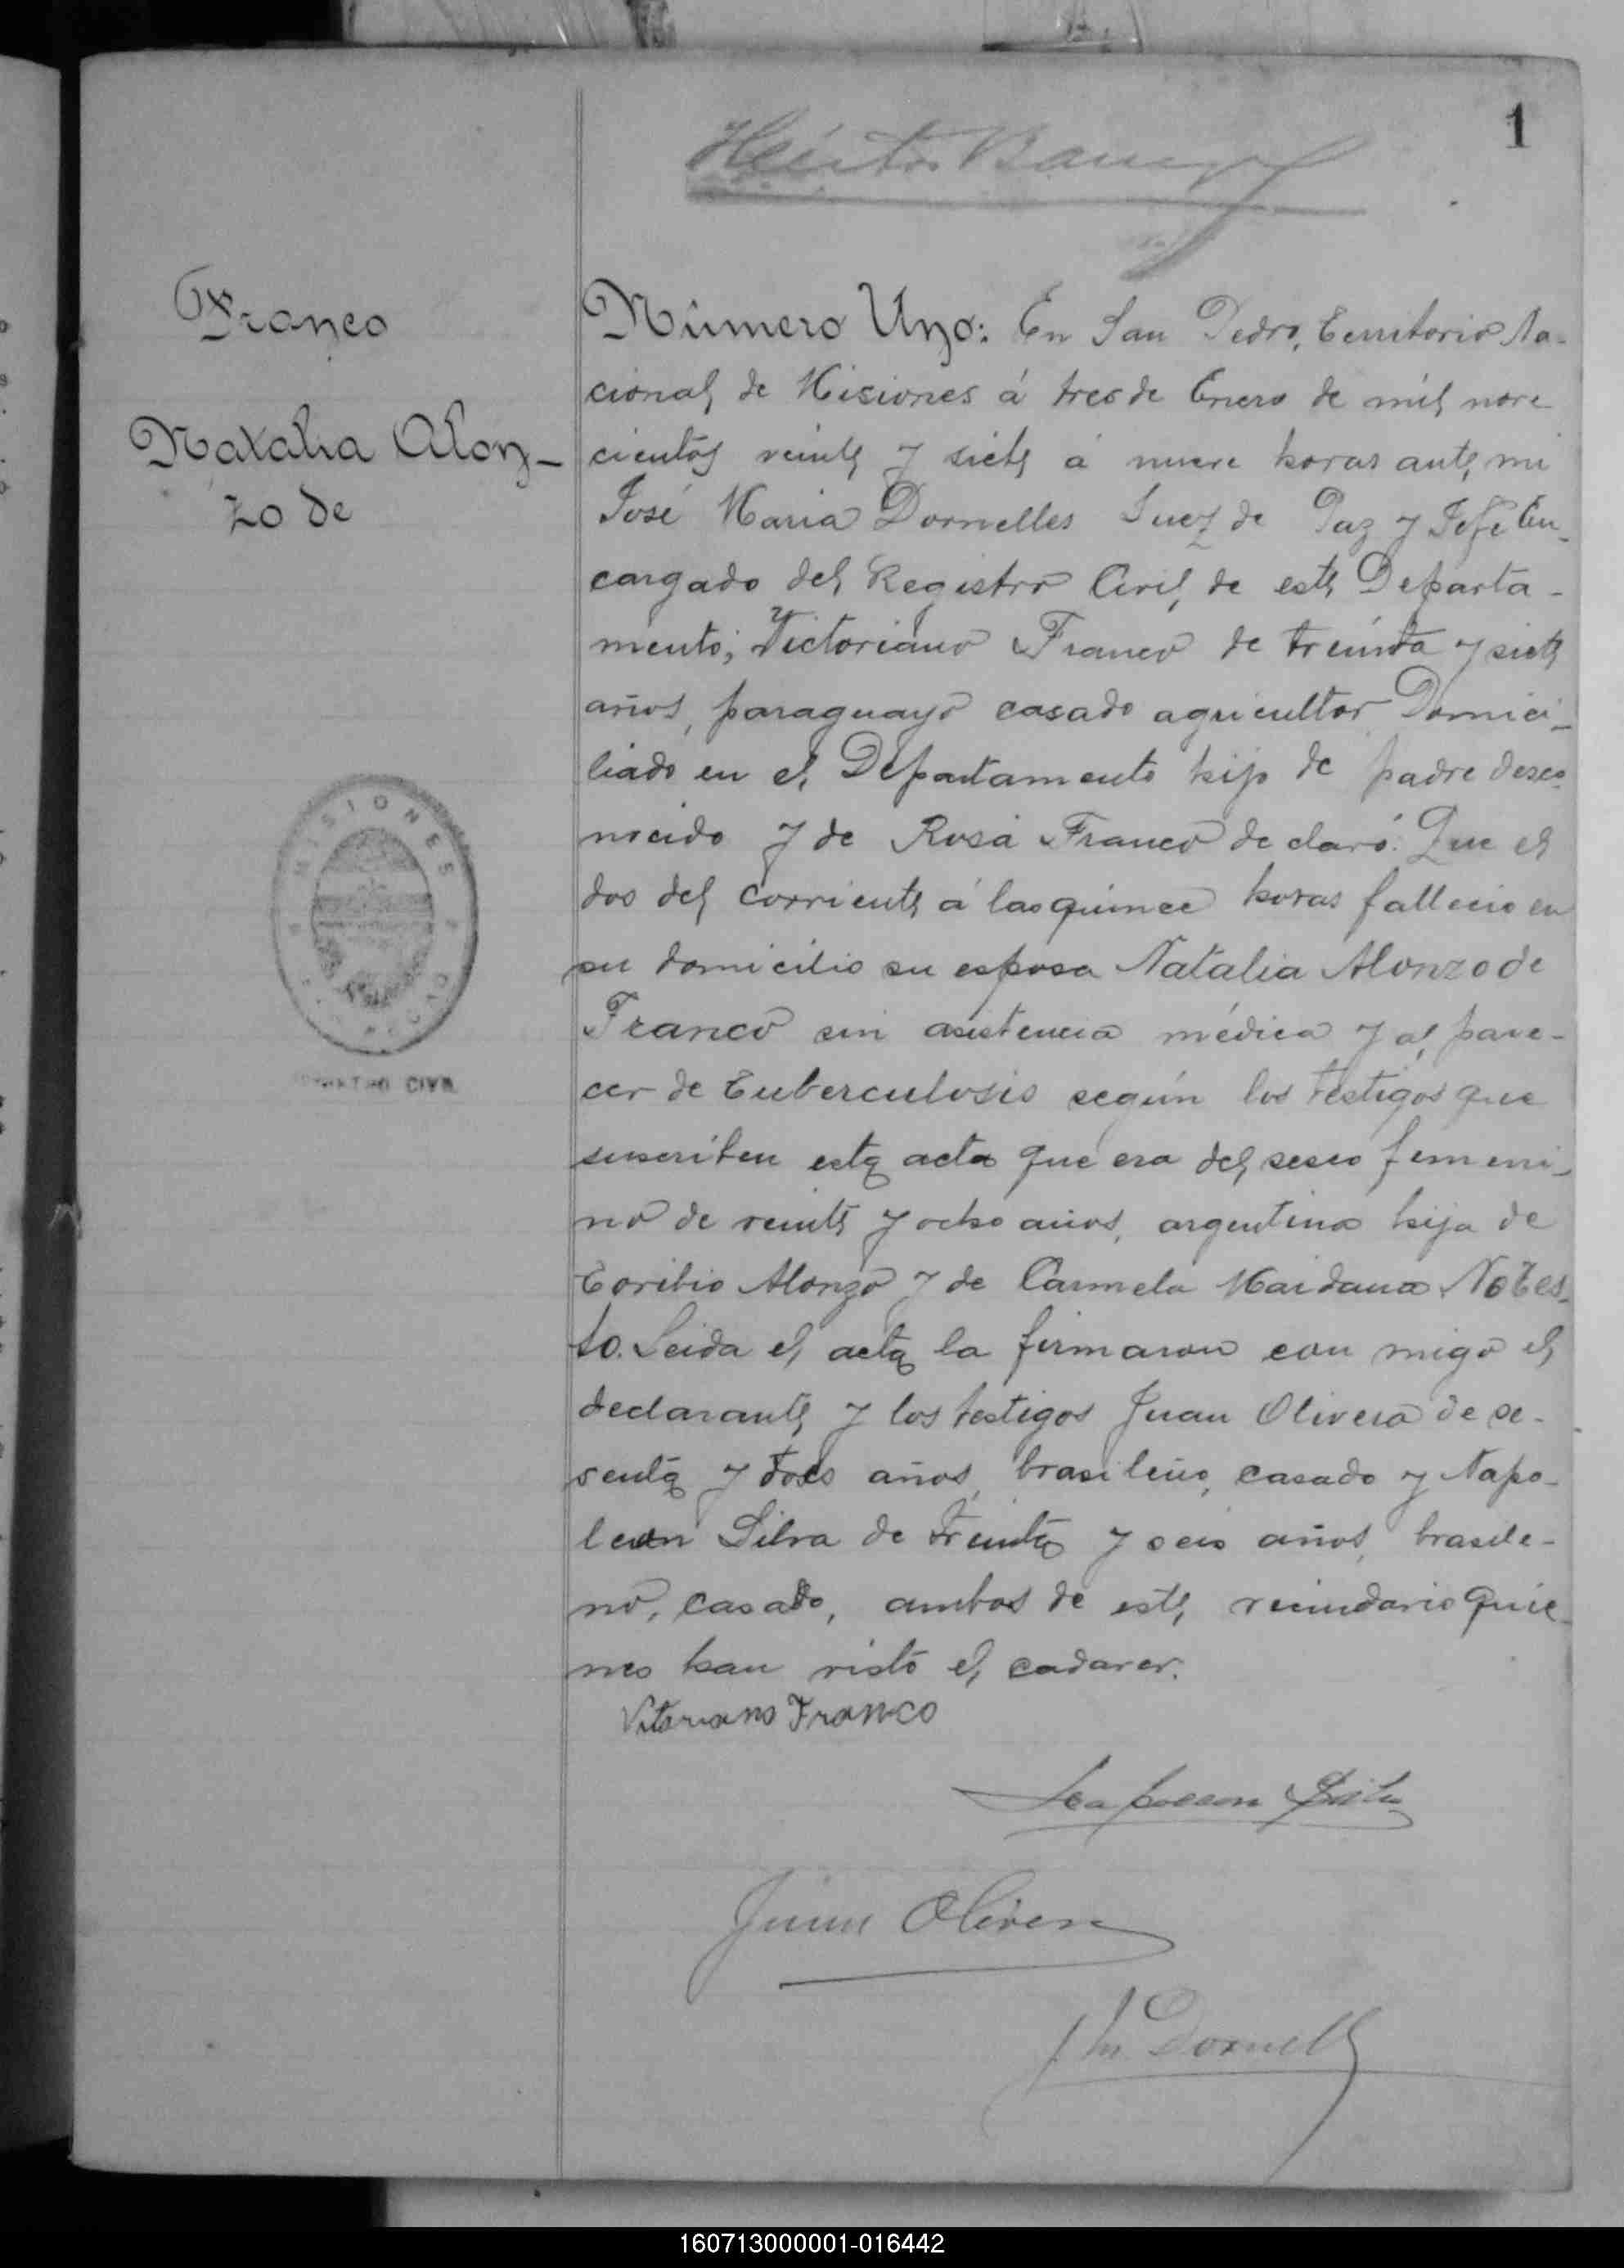 1
Franco
Natalia Alon-
zo de
Número Uno: En San Pedro, Territorio Na-
cional de Misiones á tres de Enero de mil nove
cientos veinte y siete á nueve horas ante mi
José Maria Dornelles Juez de Paz y Jefe En-
cargado del Registro Civil de este Departa-
mento; Victoriano Franco de treinta y siete
años, paraguayo casado agricultor Domici-
liado en el Departamento hijo de padre desco-
nocido y de Rosa Franco de claró: Que el
dos del corriente á las quince horas fallecio en
su domicilio su esposa Natalia Alonzo de
Franco sin asistencia médica y al pare-
cer de Tuberculosis según los testigos que
suscriben esta acta que era del sexo femeni-
no de veinte y ocho años, argentina hija de
Toribio Alonzo y de Carmela Maidana. No Tes-
tó. Leida el acta la firmaron con migo el
declarante y los testigos Juan Olivera de se-
senta y dos años, brasileño, casado y Napo-
leon Silva de treinta y seis años, brasile-
no, casado, ambos de este vecindario quie-
nes han visto el cadaver.
Vitoriano Franco
Napoleon Silva
Juan Olivera
J M Dornelles
MISIONES
REGISTRO CIVIL
160713000001-016442